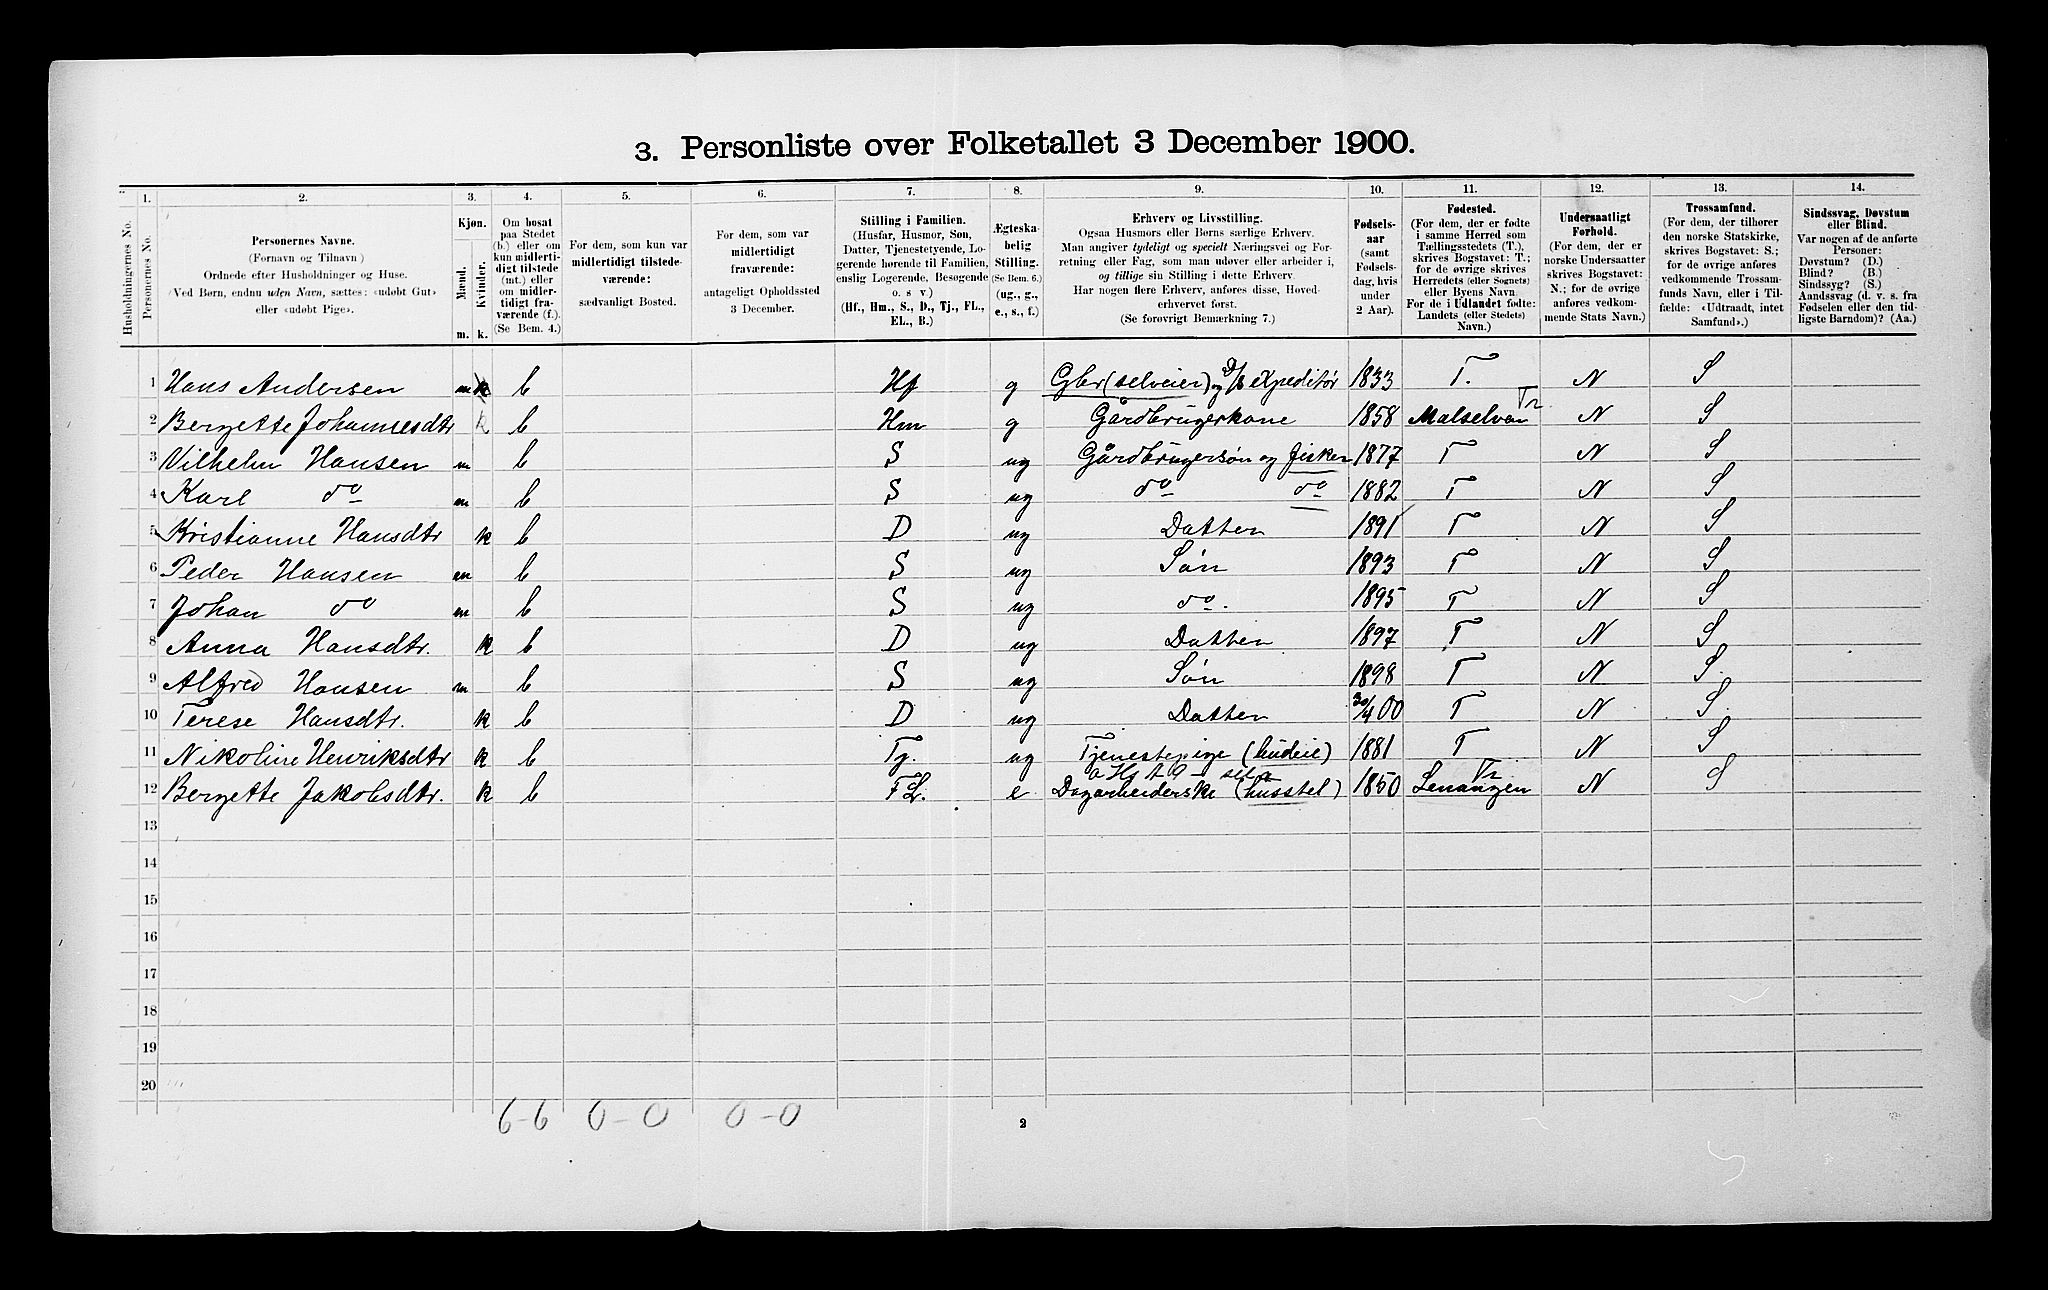 3. Personliste over Folketallet 3 December 1900.
1. 2. 3. 4. 5. 6. 7. 8. 9. 10. 11. 12. 13. 14.
Husholdningernes No.
Personernes No.
Personernes Navne.
(Fornavn og Tilnavn)
Ordnede efter Husholdninger og Huse.
(Ved Børn, endnu uden Navn, sættes: «udøbt Gut»
eller «udøbt Pige».
Kjøn.
Mænd.
Kvinder.
m. k.
Om bosat
paa Stedet
(b.) eller om
kun midlerti-
digt tilstede
(mt.) eller
om midler-
tidigt fra-
værende (f.).
(Se Bem. 4.)
For dem, som kun var
midlertidigt tilstede-
værende:
sædvanligt Bosted.
For dem, som var
midlertidigt
fraværende:
antageligt Opholdssted
3 December.
Stilling i Familien.
(Husfar, Husmor, Søn,
Datter, Tjenestetyende, Lo-
gerende hørende til Familien,
enslig Logerende, Besøgende
o. s v.)
(Hf., Hm., S., D., Tj., FL.,
EL., B.)
Ægteska-
belig
Stilling.
(Se Bem. 6.)
(ug., g.,
e., s., f.)
Erhverv og Livsstilling.
Ogsaa Husmors eller Børns særlige Erhverv.
Man angiver tydeligt og specielt Næringsvei og For-
retning eller Fag, som man udøver eller arbeider i,
og tillige sin Stilling i dette Erhverv.
Har nogen flere Erhverv, anføres disse, Hoved-
erhvervet først.
(Se forøvrigt Bemærkning 7.)
Fødsels-
aar
(samt
Fødsels-
dag, hvis
under
2 Aar).
Fødested.
(For dem, der er fødte
i samme Herred som
Tællingsstedets (T.),
skrives Bogstavet: T.;
for de øvrige skrives
Herredets (eller Sognets)
eller Byens Navn.
For de i Udlandet fødte:
Landets (eller Stedets)
Navn.)
Undersaatligt
Forhold.
(For dem, der er
norske Undersaatter
skrives Bogstavet:
N.; for de øvrige
anføres vedkom-
mende Stats Navn.)
Trossamfund.
(For dem, der tilhører
den norske Statskirke,
skrives Bogstavet: S.;
for de øvrige anføres
vedkommende Trossam-
funds Navn, eller i Til-
fælde: «Udtraadt, intet
Samfund».)
Sindssvag, Døvstum
eller Blind.
Var nogen af de anførte
Personer:
Døvstum? (D.)
Blind? (B.)
Sindssyg? (S.)
Aandssvag (d. v. s. fra
Fødselen eller den tid-
ligste Barndom)? (Aa.)
1 Hans Andersen m b Hf g Gbr (selveier) og D/S expeditør 1833 T. N S
2 Bergette Johannesdtr k b Hm g Gårdbrugerkone 1858 Malselven Tr N S
3 Vilhelm Hansen m b S ug Gårdbrugersøn og fisker 1877 T N S
4 Karl do m b S ug do do 1882 T N S
5 Kristianne Hansdtr k b D ug Datter 1891 T N S
6 Peder Hansen m b S ug Søn 1893 T N S
7 Johan do m b S ug do. 1895 T N S
8 Anna Hansdtr. k b D ug Datter 1897 T N S
9 Alfred Hansen m b S ug Søn 1898 T N S.
10 Terese Hansdtr. k b D ug Datter 30/4 00 T N S.
11 Nikoline Henriksdtr k b Tj. ug Tjenestepige (budeie) 1881 T N S
12 Bergette Jakobsdtr. k b FL. e Dagarbeiderske (husstel) 1850 Lenangen Tr N S
13
14
15
16
17
18
19
20
6-6 0-0 0-0
2